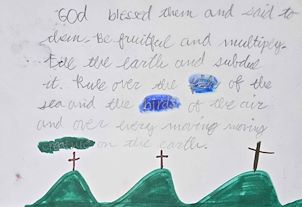 GOD blessed them and said to
them. Be fruitful and multiply.
the earth and subdue
it. Rule over the of the
sea and the birds of the air
and over every moving moving
on the earth.